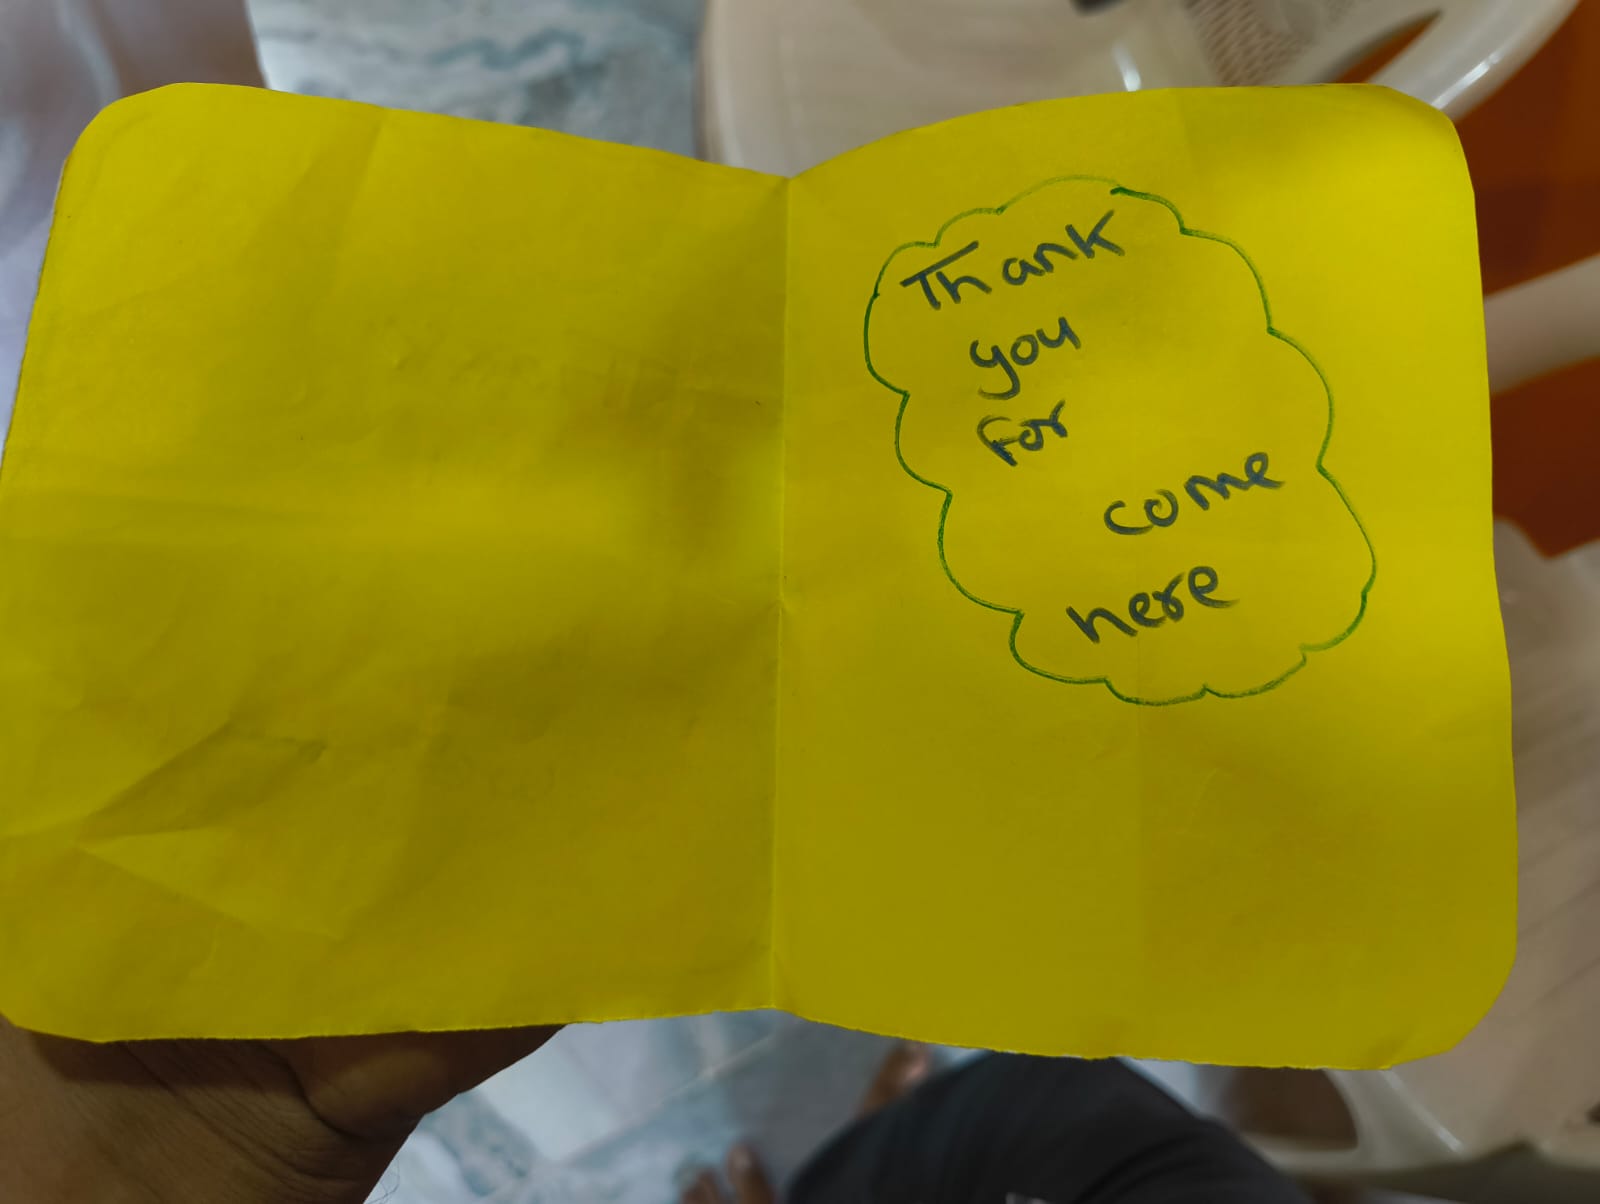 Thank
you
for
come
here